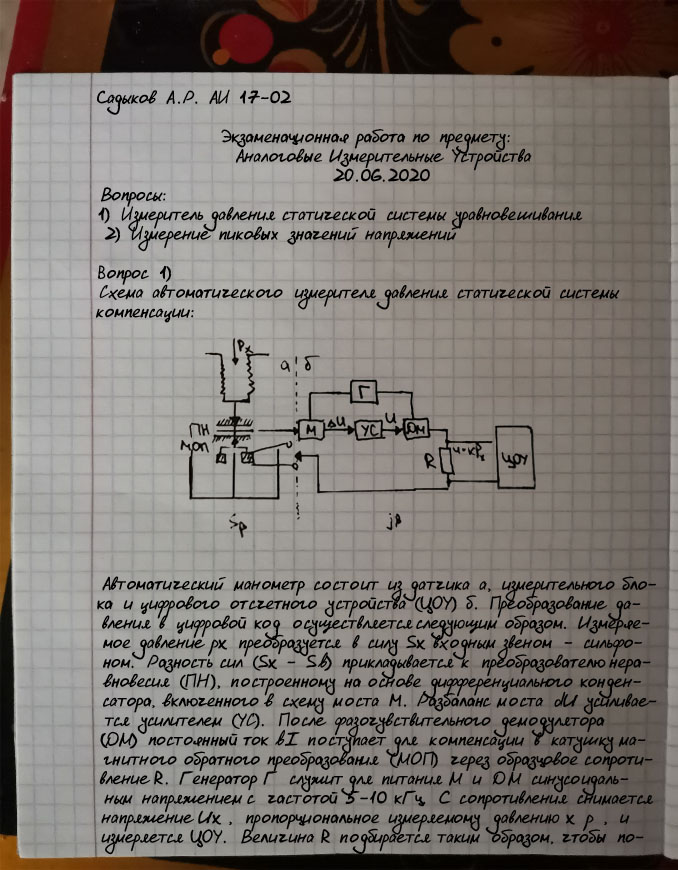 Садыков А.Р. АИ 17-02
Экзаменационная работа по предмету:
Аналоговые Измерительные Устройства
20.06.2020
Вопросы:
1) Измеритель давления статической системы уравновешивания
2) Измерение пиковых значений напряжений
Вопрос 1)
Схема автоматического измерителя давления статической системы
компенсации:
Px
а б
Г
ПН
М ΔU УС U ДМ
МОП
R
ЦОУ
Sp
jβ
Автоматический манометр состоит из датчика а, измерительного бло-
ка и цифрового отсчетного устройства (ЦОУ) б. Преобразование да-
вления в цифровой код осуществляется следующим образом. Измеряе-
мое давление px преобразуется в силу Sx входным звеном – сильфо-
ном. Разность сил (Sx – Sβ) прикладывается к преобразователю нера-
вновесия (ПН), построенному на основе дифференциального конден-
сатора, включенного в схему моста М. Разбаланс моста dU усиливае-
тся усилителем (УС). После фазочувствительного демодулетора
(ДМ) постоянный ток βI поступает для компенсации в катушку ма-
гнитного обратного преобразования (МОП) через образцовое сопроти-
вление R. Генератор Г служит для питания М и ДМ синусоидаль-
ным напряжением с частотой 5-10 кГц. С сопротивления снимается
напряжение Ux, пропорциональное измеряемому давлению x p, и
измеряется ЦОУ. Величина R подбирается таким образом, чтобы по-